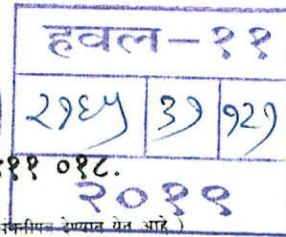 हवल-११
२१६५ ३१ १२१
११ ०१८.
२०१९
देण्यात येत आहे.)